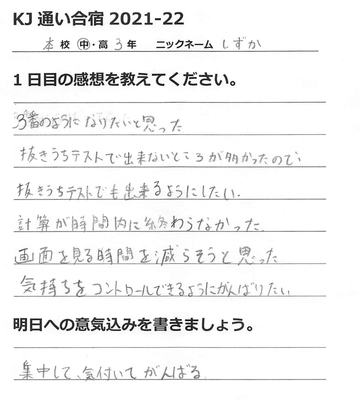 KJ 通い合宿 2021-22
本 校 中・高 3 年 ニックネーム しずか
1日目の感想を教えてください。
3番のようになりたいと思った
抜きうちテストで出来ないところが多かったので、
抜きうちテストでも出来るようにしたい.
計算が時間内に終わらなかった.
画面を見る時間を減らそうと思った
気持ちをコントロールできるようにがんばりたい
明日への意気込みを書きましょう。
集中して、気付いてがんばる.